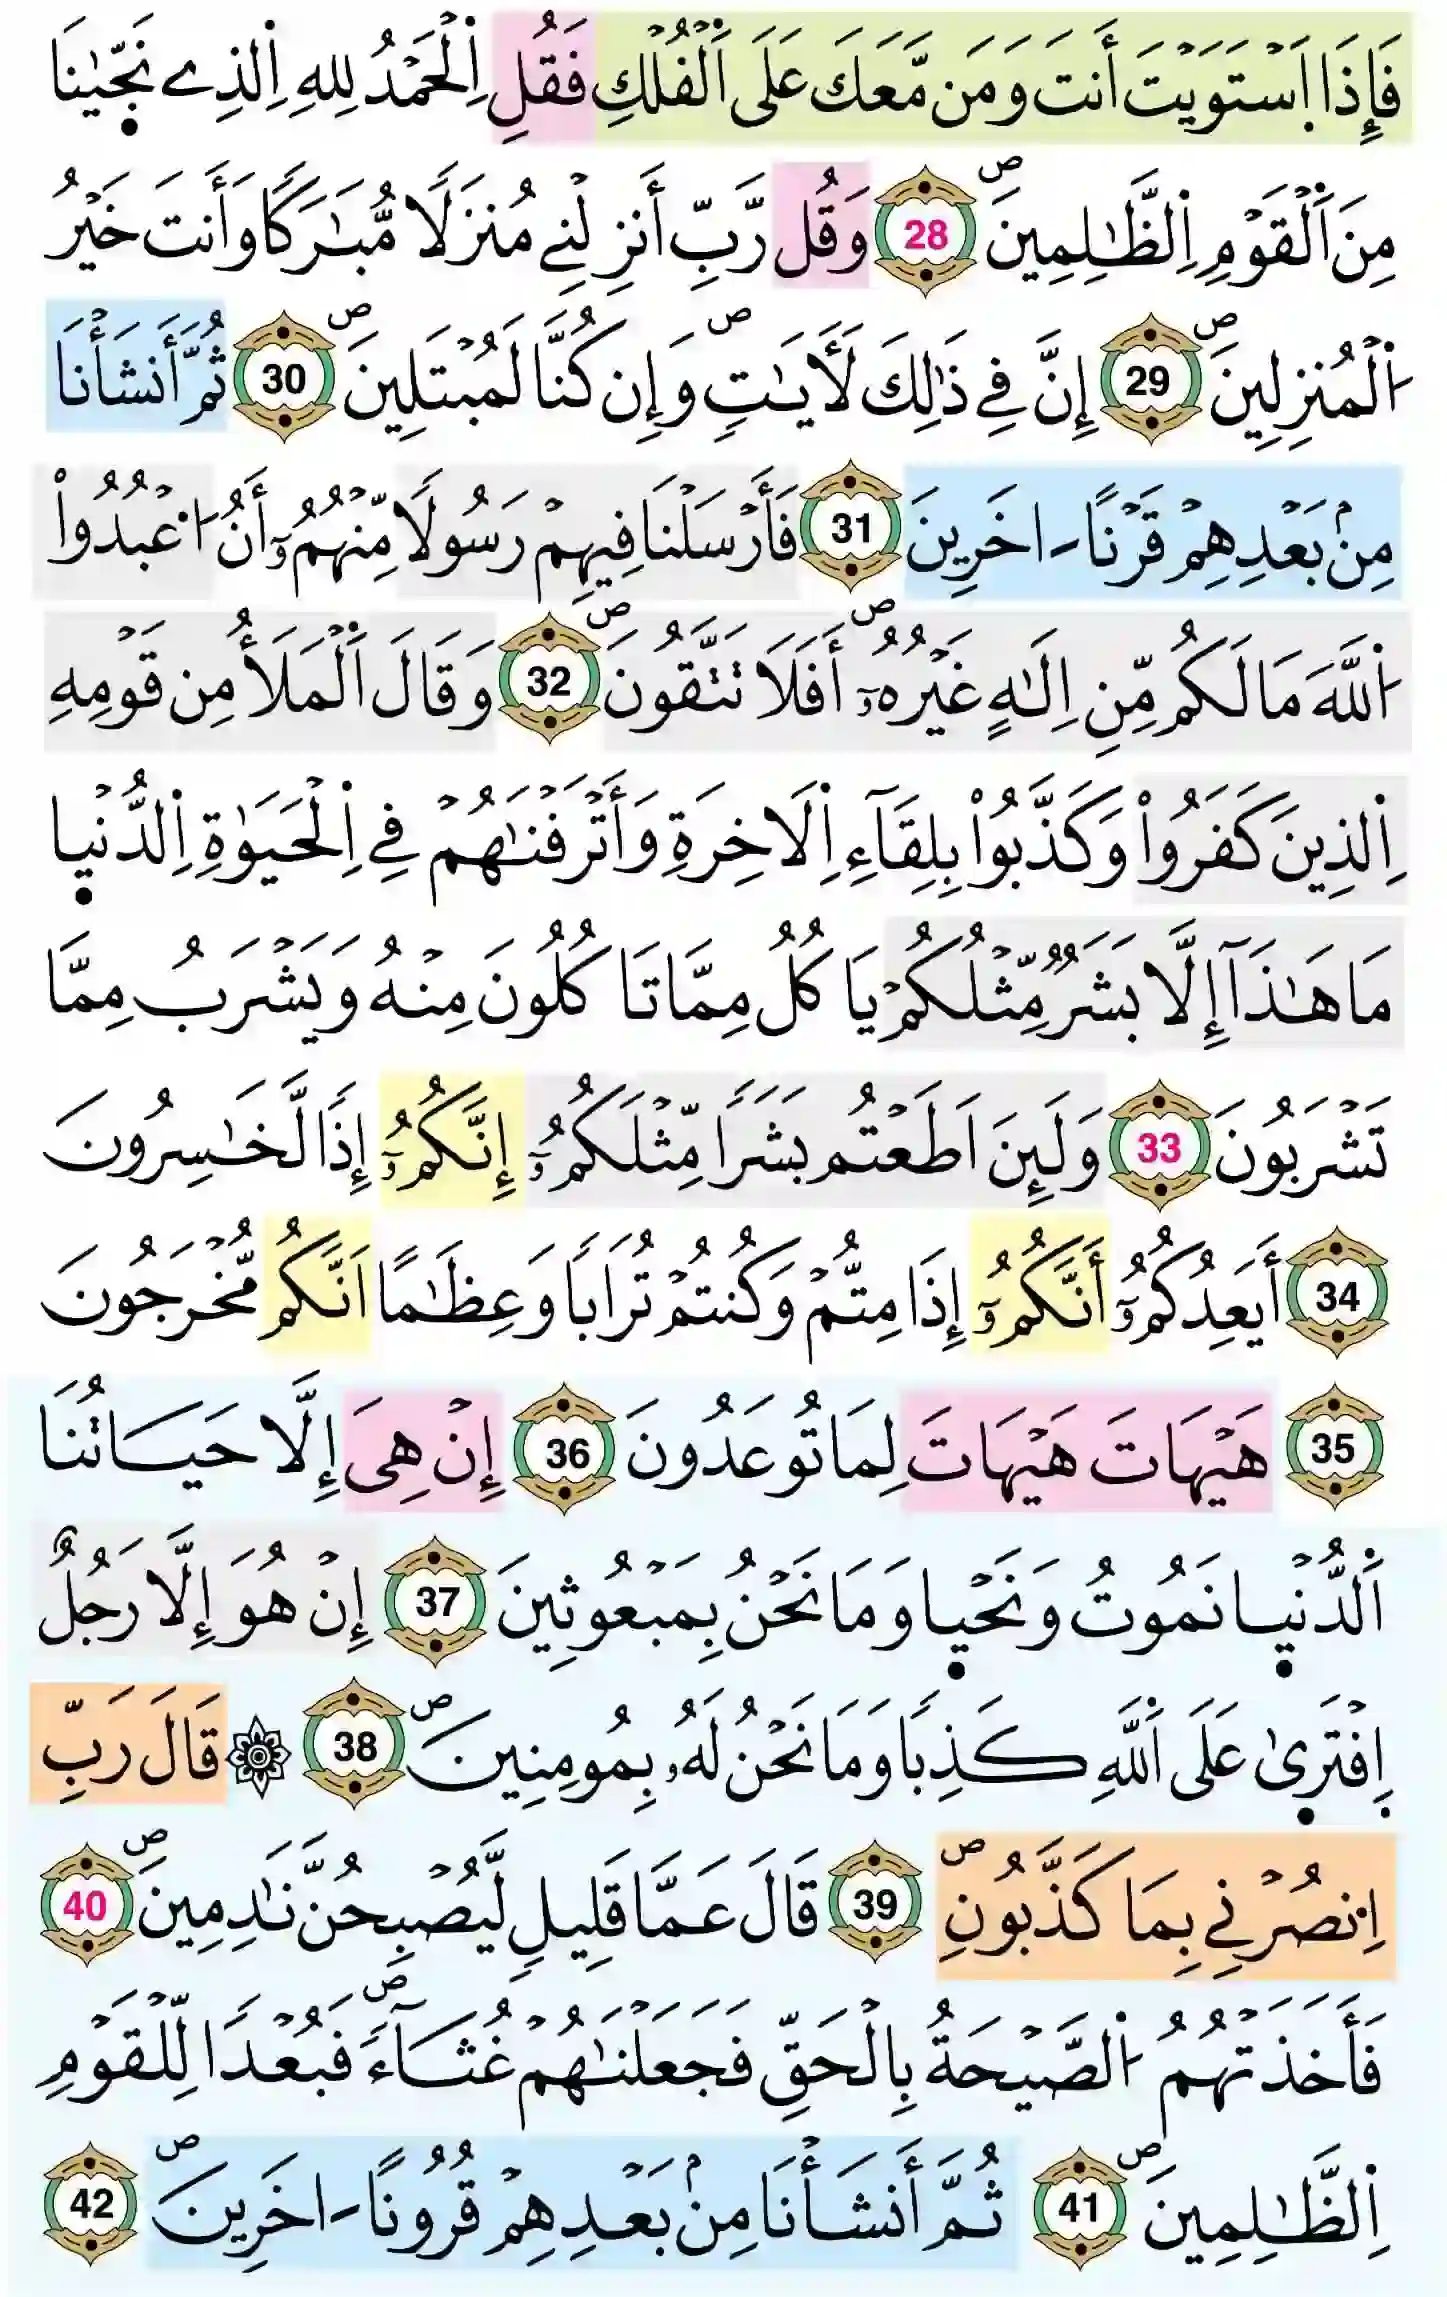 فَإِذَا اَ۪سْتَوَيْتَ أَنتَ وَمَن مَّعَكَ عَلَى اَ۬لْفُلْكِ فَقُلِ اِ۬لْحَمْدُ لِلهِ اِ۬لذِے نَجّ۪يٰنَا
مِنَ اَ۬لْقَوْمِ اِ۬لظَّٰلِمِينَۖ 28 وَقُل رَّبِّ أَنزِلْنِے مُنزَلاٗ مُّبَٰرَكاٗ وَأَنتَ خَيْرُ
اُ۬لْمُنزِلِينَۖ 29 إِنَّ فِے ذَٰلِكَ لَأٓيَٰتٖۖ وَإِن كُنَّا لَمُبْتَلِينَۖ 30 ثُمَّ أَنشَأْنَا
مِنۢ بَعْدِهِمْ قَرْناً اٰخَرِينَ 31 فَأَرْسَلْنَا فِيهِمْ رَسُولاٗ مِّنْهُمُۥٓ أَنُ اُ۟عْبُدُواْ
اُ۬للَّهَ مَا لَكُم مِّنِ اِلَٰهٍ غَيْرُهُۥٓۖ أَفَلَا تَتَّقُونَۖ 32 وَقَالَ اَ۬لْمَلَأُ مِن قَوْمِهِ
اِ۬لذِينَ كَفَرُواْ وَكَذَّبُواْ بِلِقَآءِ اِ۬لَاخِرَةِ وَأَتْرَفْنَٰهُمْ فِے اِ۬لْحَيَوٰةِ اِ۬لدُّنْي۪ا
مَا هَٰذَآ إِلَّا بَشَرٞ مِّثْلُكُمْ يَاكُلُ مِمَّا تَاكُلُونَ مِنْهُ وَيَشْرَبُ مِمَّا
تَشْرَبُونَ 33 وَلَئِنَ اَطَعْتُم بَشَراٗ مِّثْلَكُمُۥٓ إِنَّكُمُۥٓ إِذاٗ لَّخَٰسِرُونَ
34 أَيَعِدُكُمُۥٓ أَنَّكُمُۥٓ إِذَا مِتُّمْ وَكُنتُمْ تُرَاباٗ وَعِظَٰماً اَنَّكُم مُّخْرَجُونَ
35 هَيْهَاتَ هَيْهَاتَ لِمَا تُوعَدُونَ 36 إِنْ هِيَ إِلَّا حَيَاتُنَا
اَ۬لدُّنْي۪ا نَمُوتُ وَنَحْي۪ا وَمَا نَحْنُ بِمَبْعُوثِينَ 37 إِنْ هُوَ إِلَّا رَجُلٌ
اِ۪فْتَر۪يٰ عَلَى اَ۬للَّهِ كَذِباٗ وَمَا نَحْنُ لَهُۥ بِمُومِنِينَۖ 38 ۞ قَالَ رَبِّ
اِ۟نصُرْنِے بِمَا كَذَّبُونِۖ 39 قَالَ عَمَّا قَلِيلٖ لَّيُصْبِحُنَّ نَٰدِمِينَۖ 40
فَأَخَذَتْهُمُ اُ۬لصَّيْحَةُ بِالْحَقِّ فَجَعَلْنَٰهُمْ غُثَآءٗۖ فَبُعْداٗ لِّلْقَوْمِ
اِ۬لظَّٰلِمِينَۖ 41 ثُمَّ أَنشَأْنَا مِنۢ بَعْدِهِمْ قُرُوناً اٰخَرِينَۖ 42